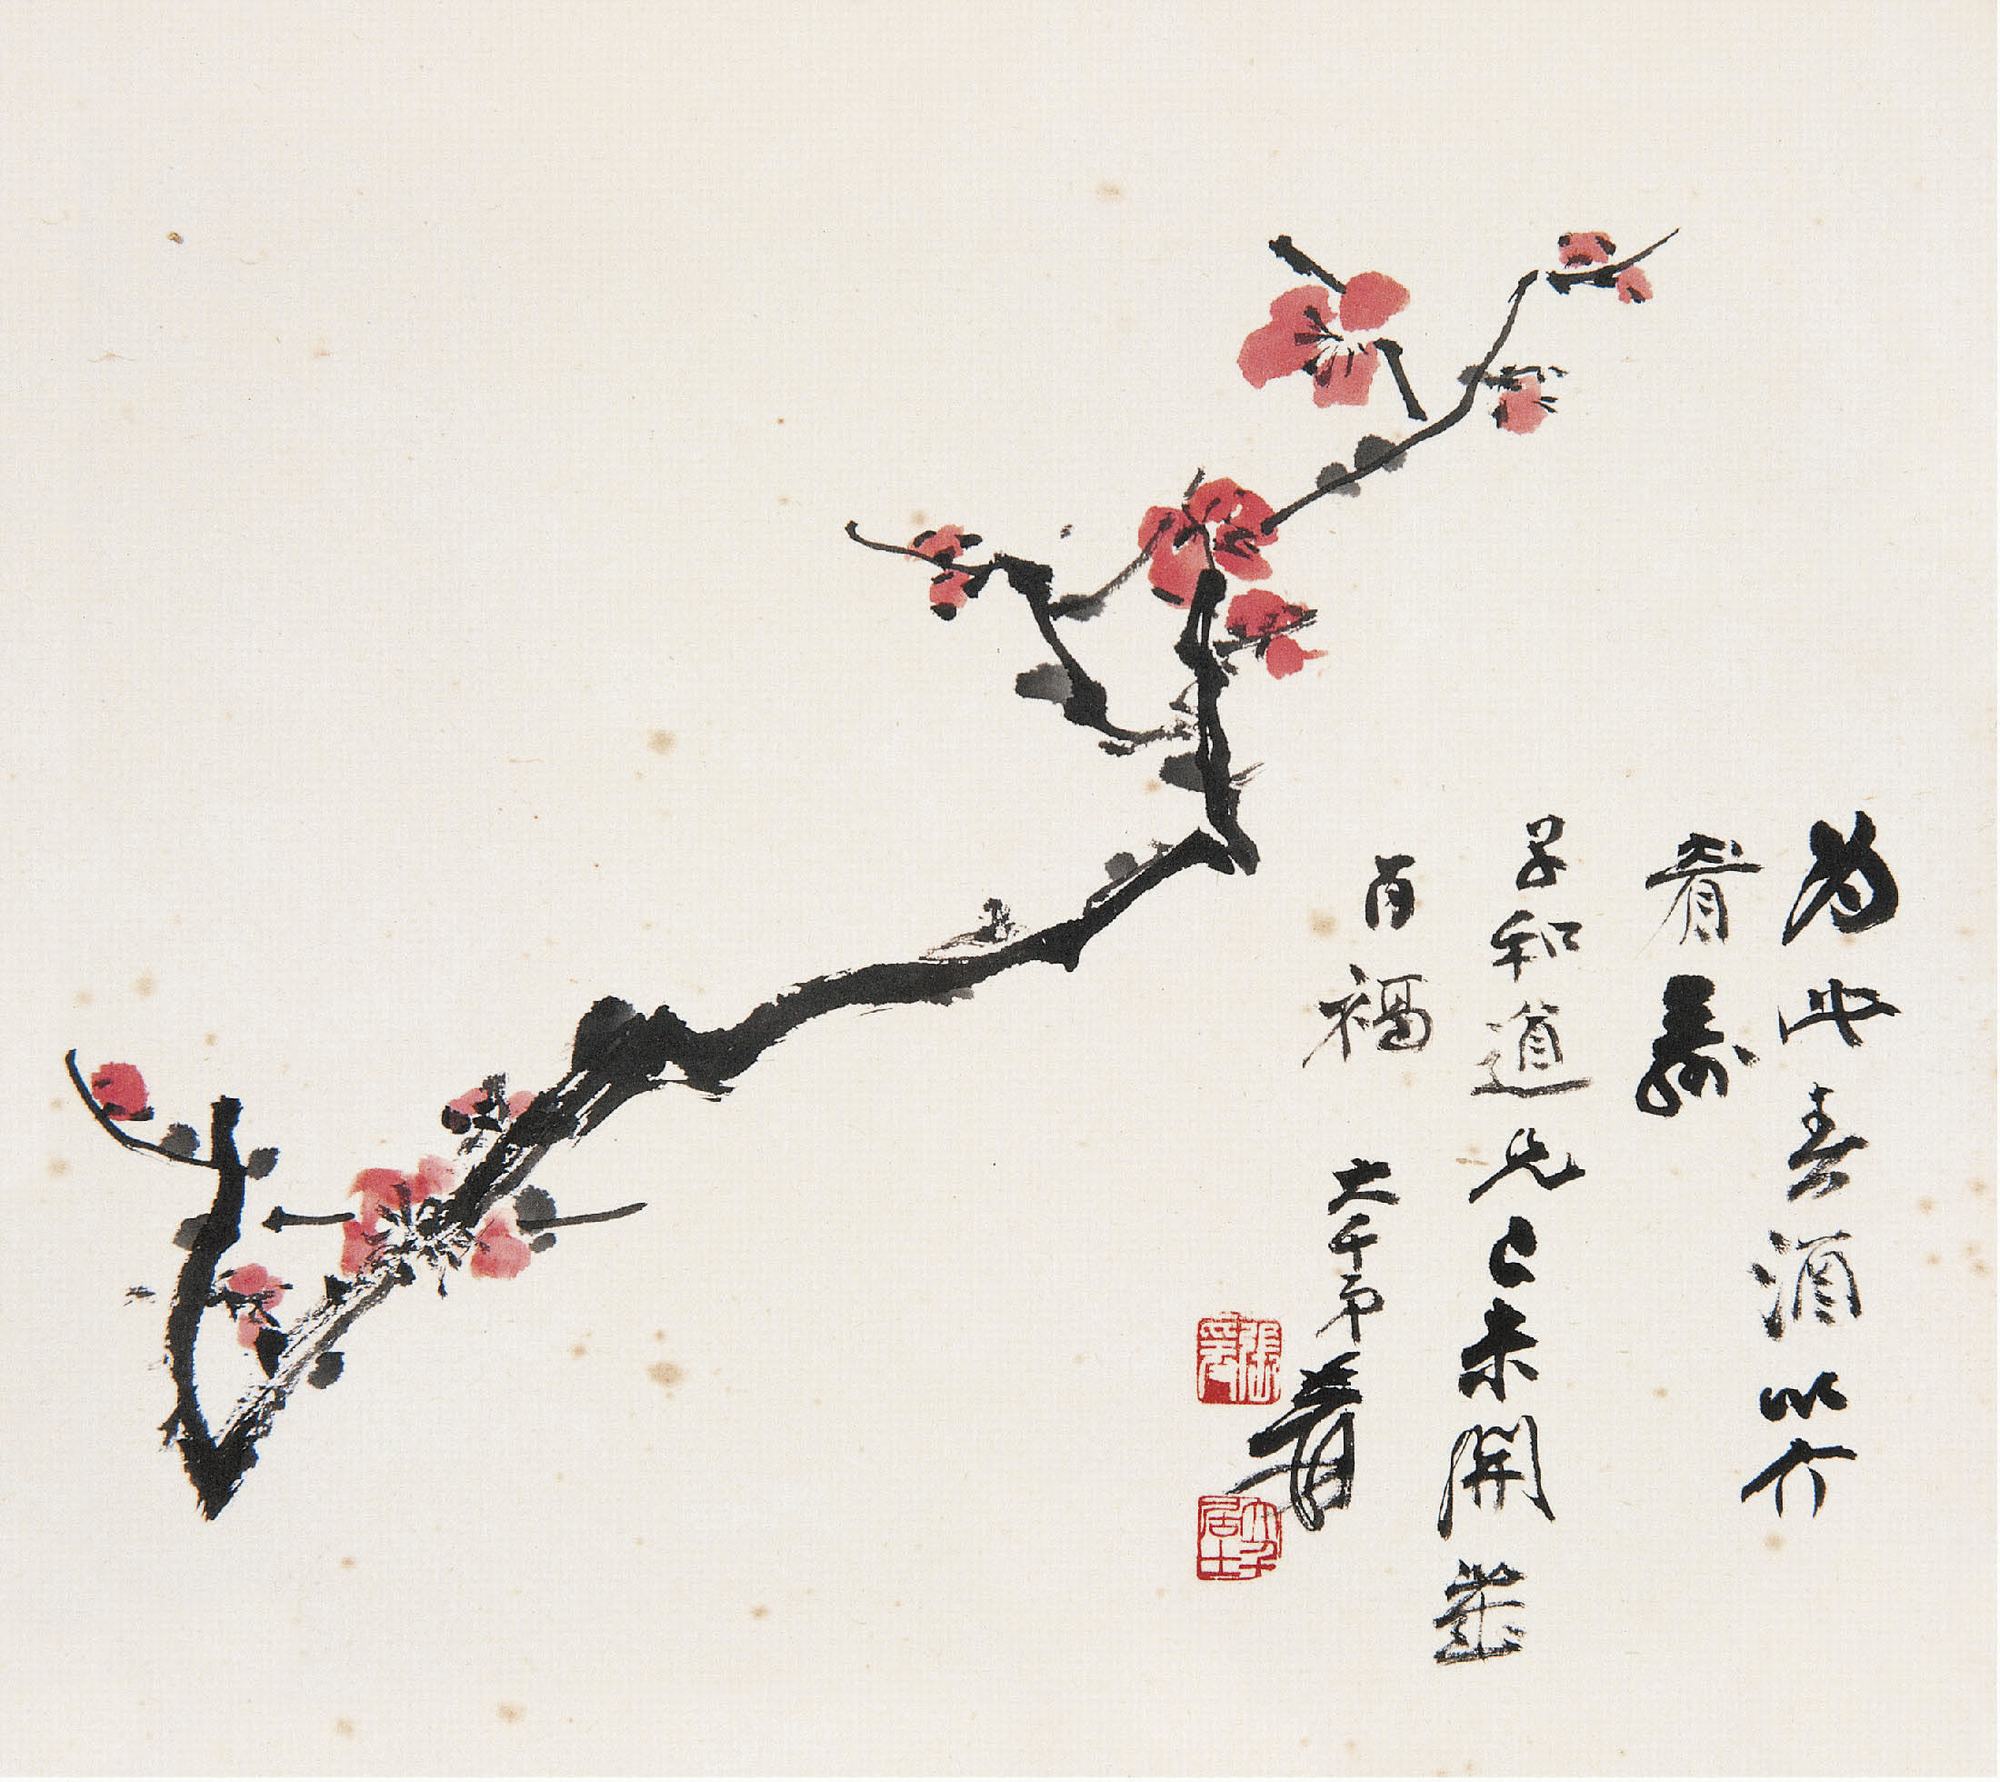 為此春酒以介
眉壽
子和道兄己未開歲
百福 大千弟爰
張爰
大千居士